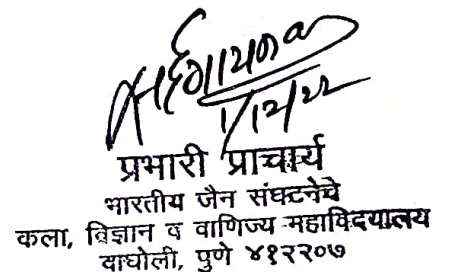 १/१२/२२
प्रभारी प्राचार्य
भारतीय जैन संघटनेचे
कला, विज्ञान व वाणिज्य महाविदयालय
वाघोली, पुणे ४१२२०७